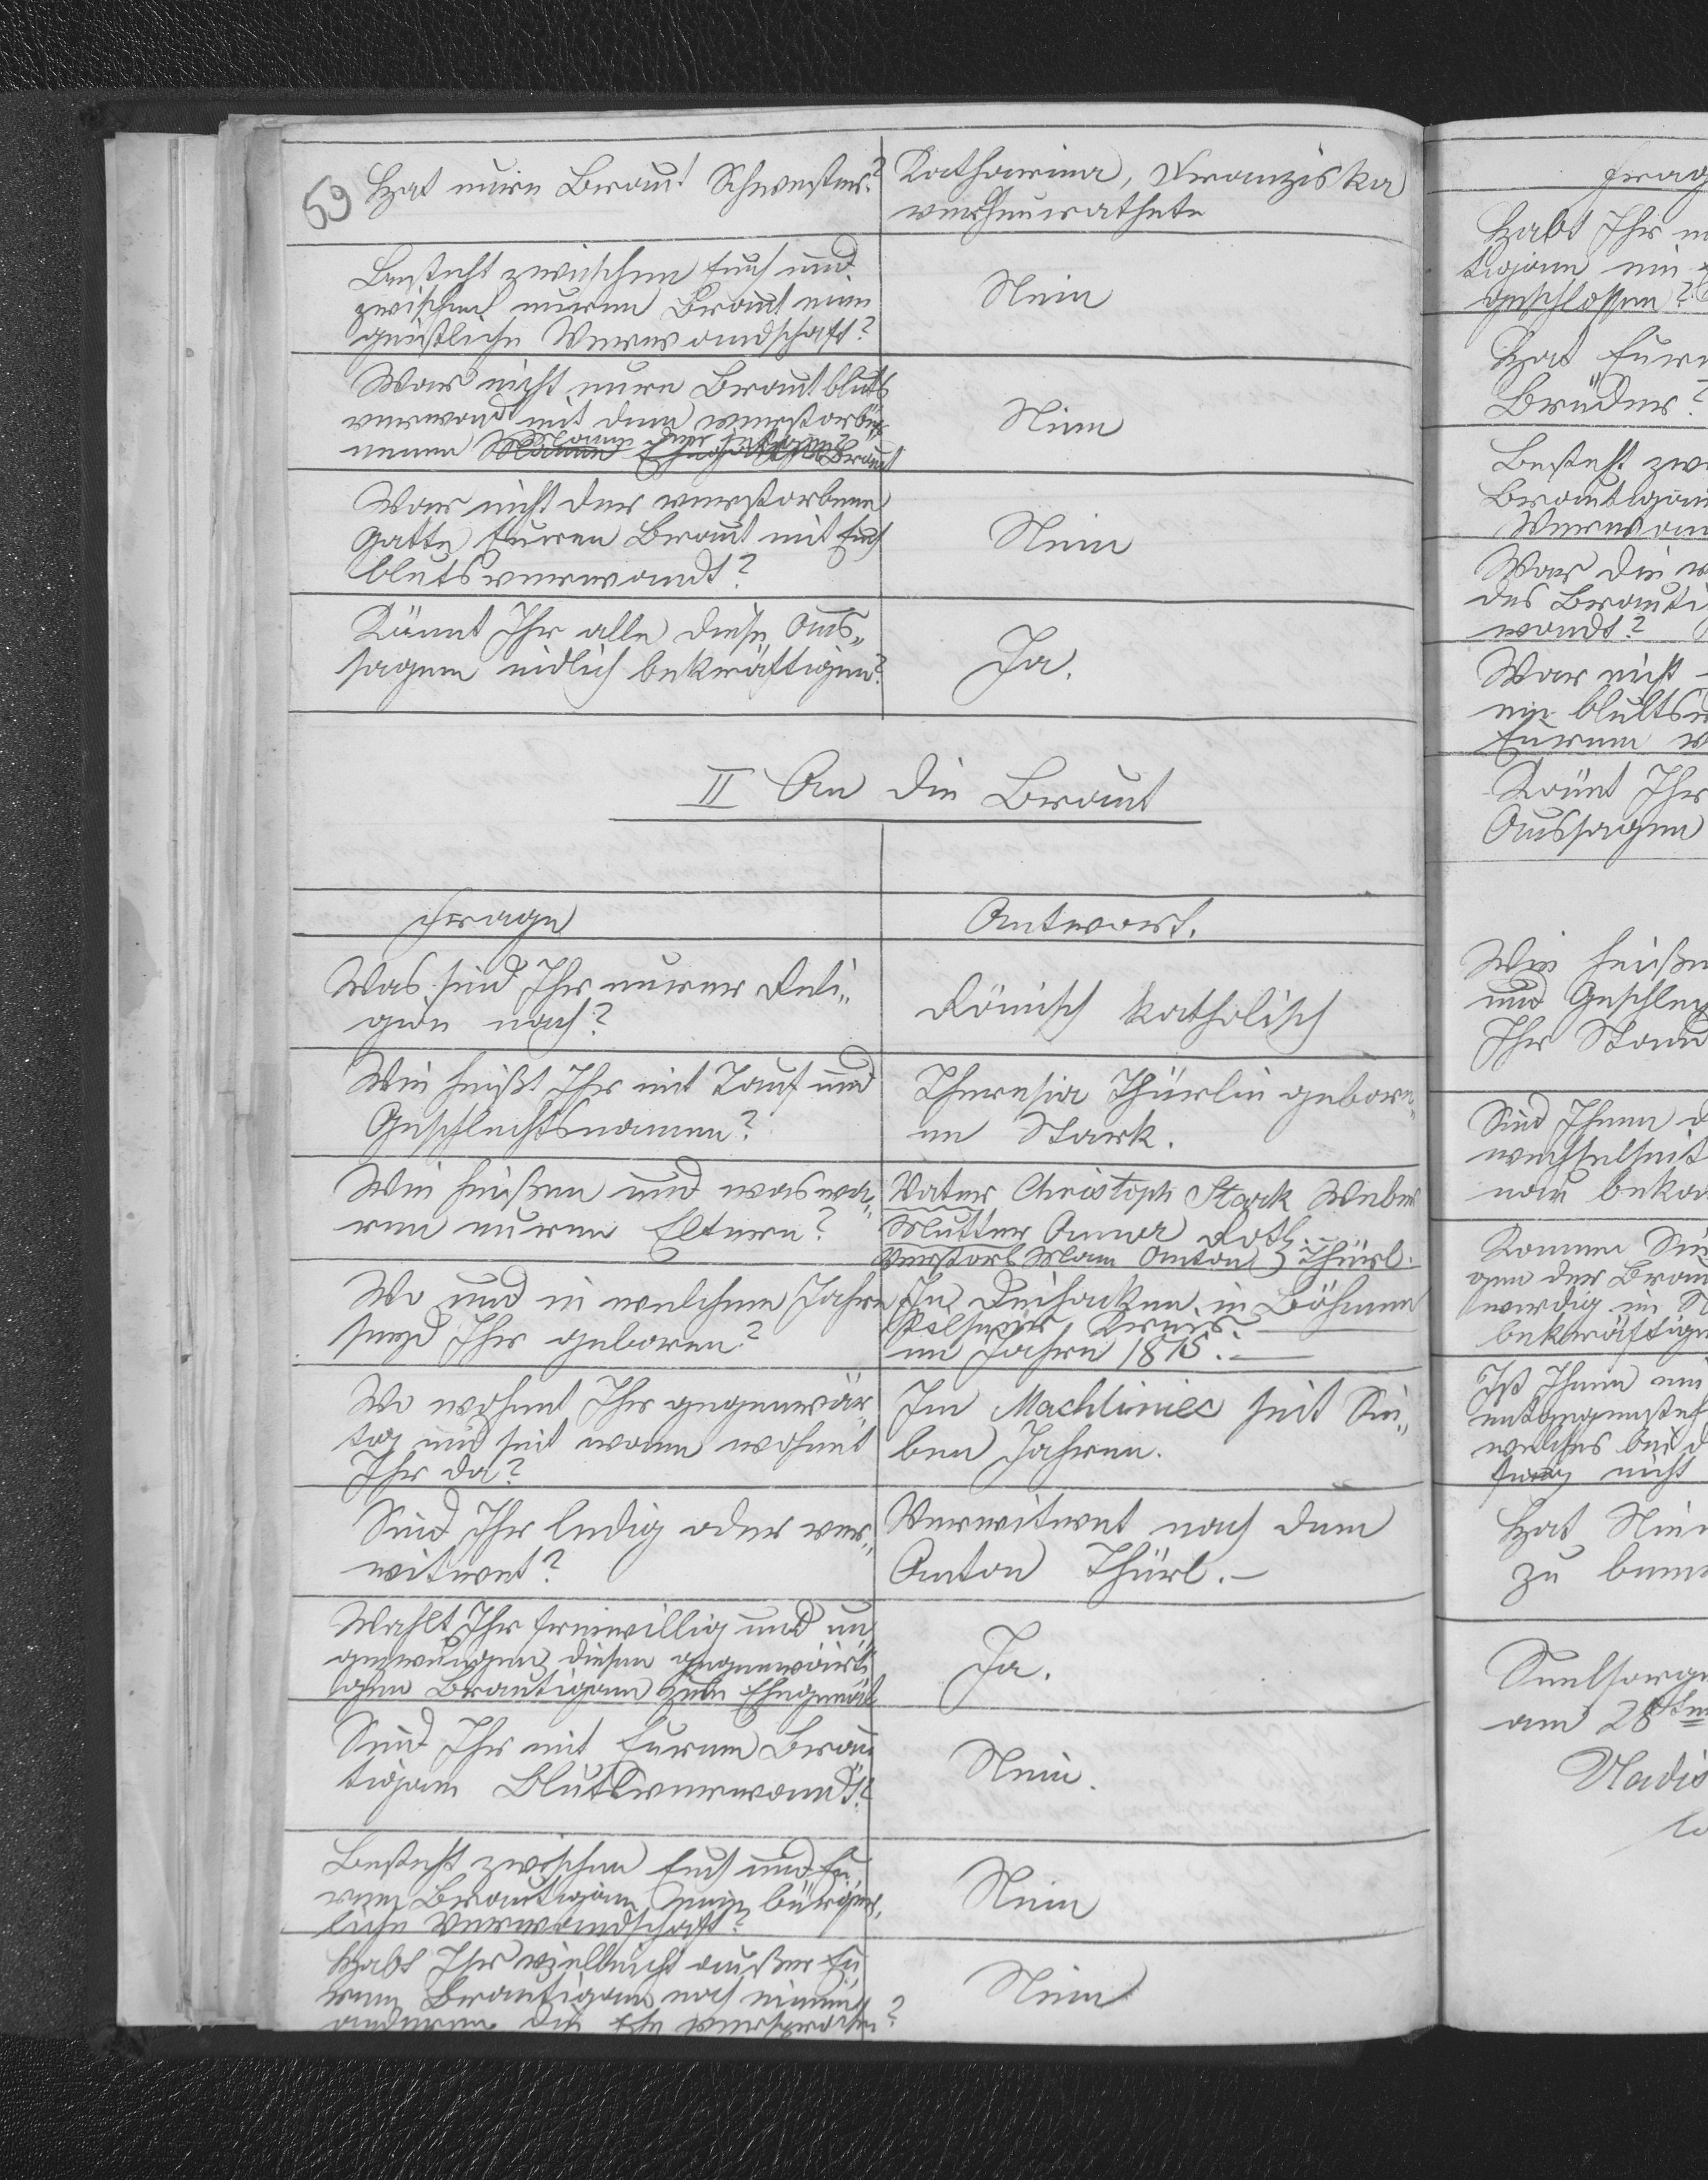 59
Hat eure Braut Schwester?
Katharina, Franziska
verheurathete
Besteht zwischen Euch und
zwischen euren Braut eine
geistliche Verwandschaft?
Nein
War nicht eure Braut bluts
verwand mit dem verstorbe
nenen Braut
Nein
War nicht der verstorbene
Gatte Euren Braut mit Euch
blutsverwandt?
Nein
Könnt Ihr alle diese Aus„
sagen eidlich bekräftigen?
Ja.
II An die Braut
Frage
Antwort.
Was sind Ihr eurer Reli„
gion nach?
Römisch katholisch
Wie heißt Ihr mit Tauf und
Geschlechtsnamen?
Theresia Thürlin gebore„
ne Stark.
Wie heißen und was wa„
ren euren Eltern?
Vater Christoph Stark Weber
Mutter Anna Roth.
Verstorb Mann Anton Thürl.
Wo und in welchem Jahre
seyd Ihr geboren?
In in Böhmen
Kreis.
im Jahre 1815.
Wo wohnt Ihr gegenwär„
tig und seit wann wohnt
Ihr da?
In Machliniec seit Sie„
ben Jahren.
Sind Ihr ledig oder ver„
witwet?
Verwitwet nach dem
Anton Thürl. —
Wahlt Ihr freiwillig und un„
gezwungen diesen gegenwärti„
gen Brautigam zum
Ja.
Sind Ihr mit Eurem Brau
tigam Blutsverwandt?
Nein.
Besteht zwischen Euch und Eu„
rem Brautigam eine bürger„
liche Verwandschaft?
Nein
Habt Ihr vielleicht außer Eu
rem Brautigam noch einem
anderen die Ehe versprochen?
Nein
Frag
Habt Ihr
tigam ein
geschlossen?
Hat Eure
Brüder?
Besteht zwi
Brautigam
Verwan
War die
des Brauti
wandt?
War nicht
ein bluts
Eurem
Könnt Ihr
Aussagen
Wie heißen
und Geschlec
Ihr Stand
Sind Ihnen d
wechselseit
nau beka
Kommen Sie
gen der Brau
würdig im
bekräftigen
Ist Ihnen ein
entgegensteh
welches bei d
nicht
Hat Nie
zu beme
Seelsorge
am 28ten